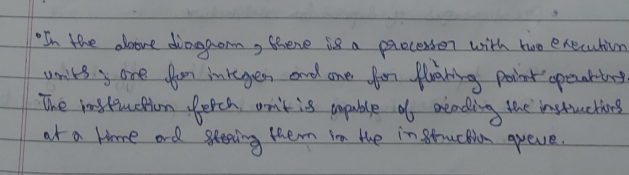 • In the above diagram, there is a processor with two execution
units; one for integer and one for floating point operations.
The instruction fetch unit is capable of reading the instructions
at a time and storing them in the instruction queue.